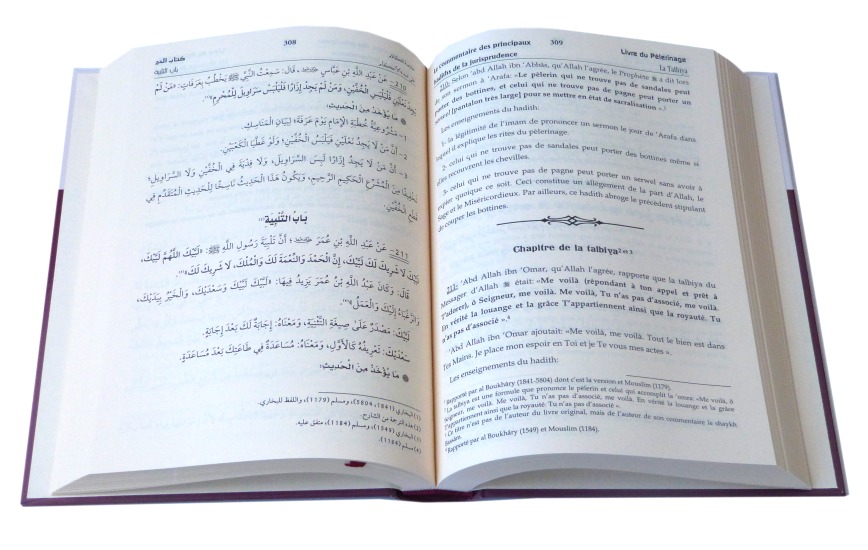 308
كتاب الحج
باب التلبية
٢١٠ـ عَنْ عَبْدِ اللَّهِ بْنِ عَبَّاسٍ، قَالَ: سَمِعْتُ النَّبِيَّ ﷺ يَخْطُبُ بِعَرَفَاتٍ: «مَنْ لَمْ
يَجِدْ نَعْلَيْنِ فَلْيَلْبَسِ الْخُفَّيْنِ، وَمَنْ لَمْ يَجِدْ إِزَارًا فَلْيَلْبَسْ سَرَاوِيلَ لِلْمُحْرِمِ»
● مَا يُؤْخَذُ مِنَ الْحَدِيثِ:
١ - مَشْرُوعِيَّةُ خُطْبَةِ الْإِمَامِ يَوْمَ عَرَفَةَ؛ لِبَيَانِ الْمَنَاسِكِ.
٢ - أَنَّ مَنْ لَا يَجِدُ نَعْلَيْنِ فَيَلْبَسُ الْخُفَّيْنِ؛ وَلَوْ غَطَّيَا الْكَعْبَيْنِ.
٣ - أَنَّ مَنْ لَمْ يَجِدْ إِزَارًا لَبِسَ السَّرَاوِيلَ، وَلَا فِدْيَةَ فِي الْخُفَّيْنِ وَلَا السَّرَاوِيلِ؛
تَخْفِيفًا مِنَ الْمُشَرِّعِ الْحَكِيمِ الرَّحِيمِ، وَيَكُونُ هَذَا الْحَدِيثُ نَاسِخًا لِلْحَدِيثِ الْمُتَقَدِّمِ فِي
قَطْعِ الْخُفَّيْنِ.
بَابُ التَّلْبِيَةِ
٢١١ـ عَنْ عَبْدِ اللَّهِ بْنِ عُمَرَ؛ أَنَّ تَلْبِيَةَ رَسُولِ اللَّهِ ﷺ: «لَبَّيْكَ اللَّهُمَّ لَبَّيْكَ،
لَبَّيْكَ لَا شَرِيكَ لَكَ لَبَّيْكَ، إِنَّ الْحَمْدَ وَالنِّعْمَةَ لَكَ وَالْمُلْكَ، لَا شَرِيكَ لَكَ»
قَالَ: وَكَانَ عَبْدُ اللَّهِ بْنُ عُمَرَ يَزِيدُ فِيهَا: «لَبَّيْكَ لَبَّيْكَ وَسَعْدَيْكَ، وَالْخَيْرُ بِيَدَيْكَ،
وَالرَّغْبَاءُ إِلَيْكَ وَالْعَمَلُ»
لَبَّيْكَ: مَصْدَرٌ عَلَى صِيغَةِ التَّثْنِيَةِ، وَمَعْنَاهُ: إِجَابَةٌ لَكَ بَعْدَ إِجَابَةٍ.
سَعْدَيْكَ: تَعْرِيفُهُ كَالْأَوَّلِ، وَمَعْنَاهُ: مُسَاعَدَةٌ فِي طَاعَتِكَ بَعْدَ مُسَاعَدَةٍ.
● مَا يُؤْخَذُ مِنَ الْحَدِيثِ:
(١) البخاري (1841، 5804)، ومسلم (1179)، واللفظ للبخاري.
(٢) هذه الترجمة من الشارح.
(٣) البخاري (1549)، ومسلم (1184).
(٤) مسلم (1184)، متفق عليه.
Le commentaire des principaux
hadiths de la jurisprudence
309
Livre du Pèlerinage
La Talbiya
210. Selon 'Abd Allah ibn 'Abbâs, qu'Allah l'agrée, le Prophète ﷺ a dit lors
de son sermon à 'Arafa: «Le pèlerin qui ne trouve pas de sandales peut
porter des bottines, et celui qui ne trouve pas de pagne peut porter un
serwel [pantalon très large] pour se mettre en état de sacralisation ».¹
Les enseignements du hadith:
1- la légitimité de l'imam de prononcer un sermon le jour de 'Arafa dans
lequel il explique les rites du pèlerinage.
2- celui qui ne trouve pas de sandales peut porter des bottines même si
elles recouvrent les chevilles.
3- celui qui ne trouve pas de pagne peut porter un serwel sans avoir à
expier quoique ce soit. Ceci constitue un allègement de la part d'Allah, le
Sage et le Miséricordieux. Par ailleurs, ce hadith abroge le précédent stipulant
de couper les bottines.
Chapitre de la talbiya² ᵉᵗ ³
211. 'Abd Allah ibn 'Omar, qu'Allah l'agrée, rapporte que la talbiya du
Messager d'Allah ﷺ était: «Me voilà (répondant à ton appel et prêt à
T'adorer), ô Seigneur, me voilà. Me voilà, Tu n'as pas d'associé, me voilà.
En vérité la louange et la grâce T'appartiennent ainsi que la royauté. Tu
n'as pas d'associé ».⁴
'Abd Allah ibn 'Omar ajoutait: «Me voilà, me voilà. Tout le bien est dans
Tes Mains. Je place mon espoir en Toi et je Te vous mes actes ».
Les enseignements du hadith:
¹ Rapporté par al Boukhâry (1841-5804) dont c'est la version et Mouslim (1179).
² La talbiya est une formule que prononce le pèlerin et celui qui accomplit la 'omra: «Me voilà, ô
Seigneur, me voilà. Me voilà, Tu n'as pas d'associé, me voilà. En vérité la louange et la grâce
T'appartiennent ainsi que la royauté. Tu n'as pas d'associé ».
³ Ce titre n'est pas de l'auteur du livre original, mais de l'auteur de son commentaire le shaykh
Bassâm.
⁴ Rapporté par al Boukhâry (1549) et Mouslim (1184).